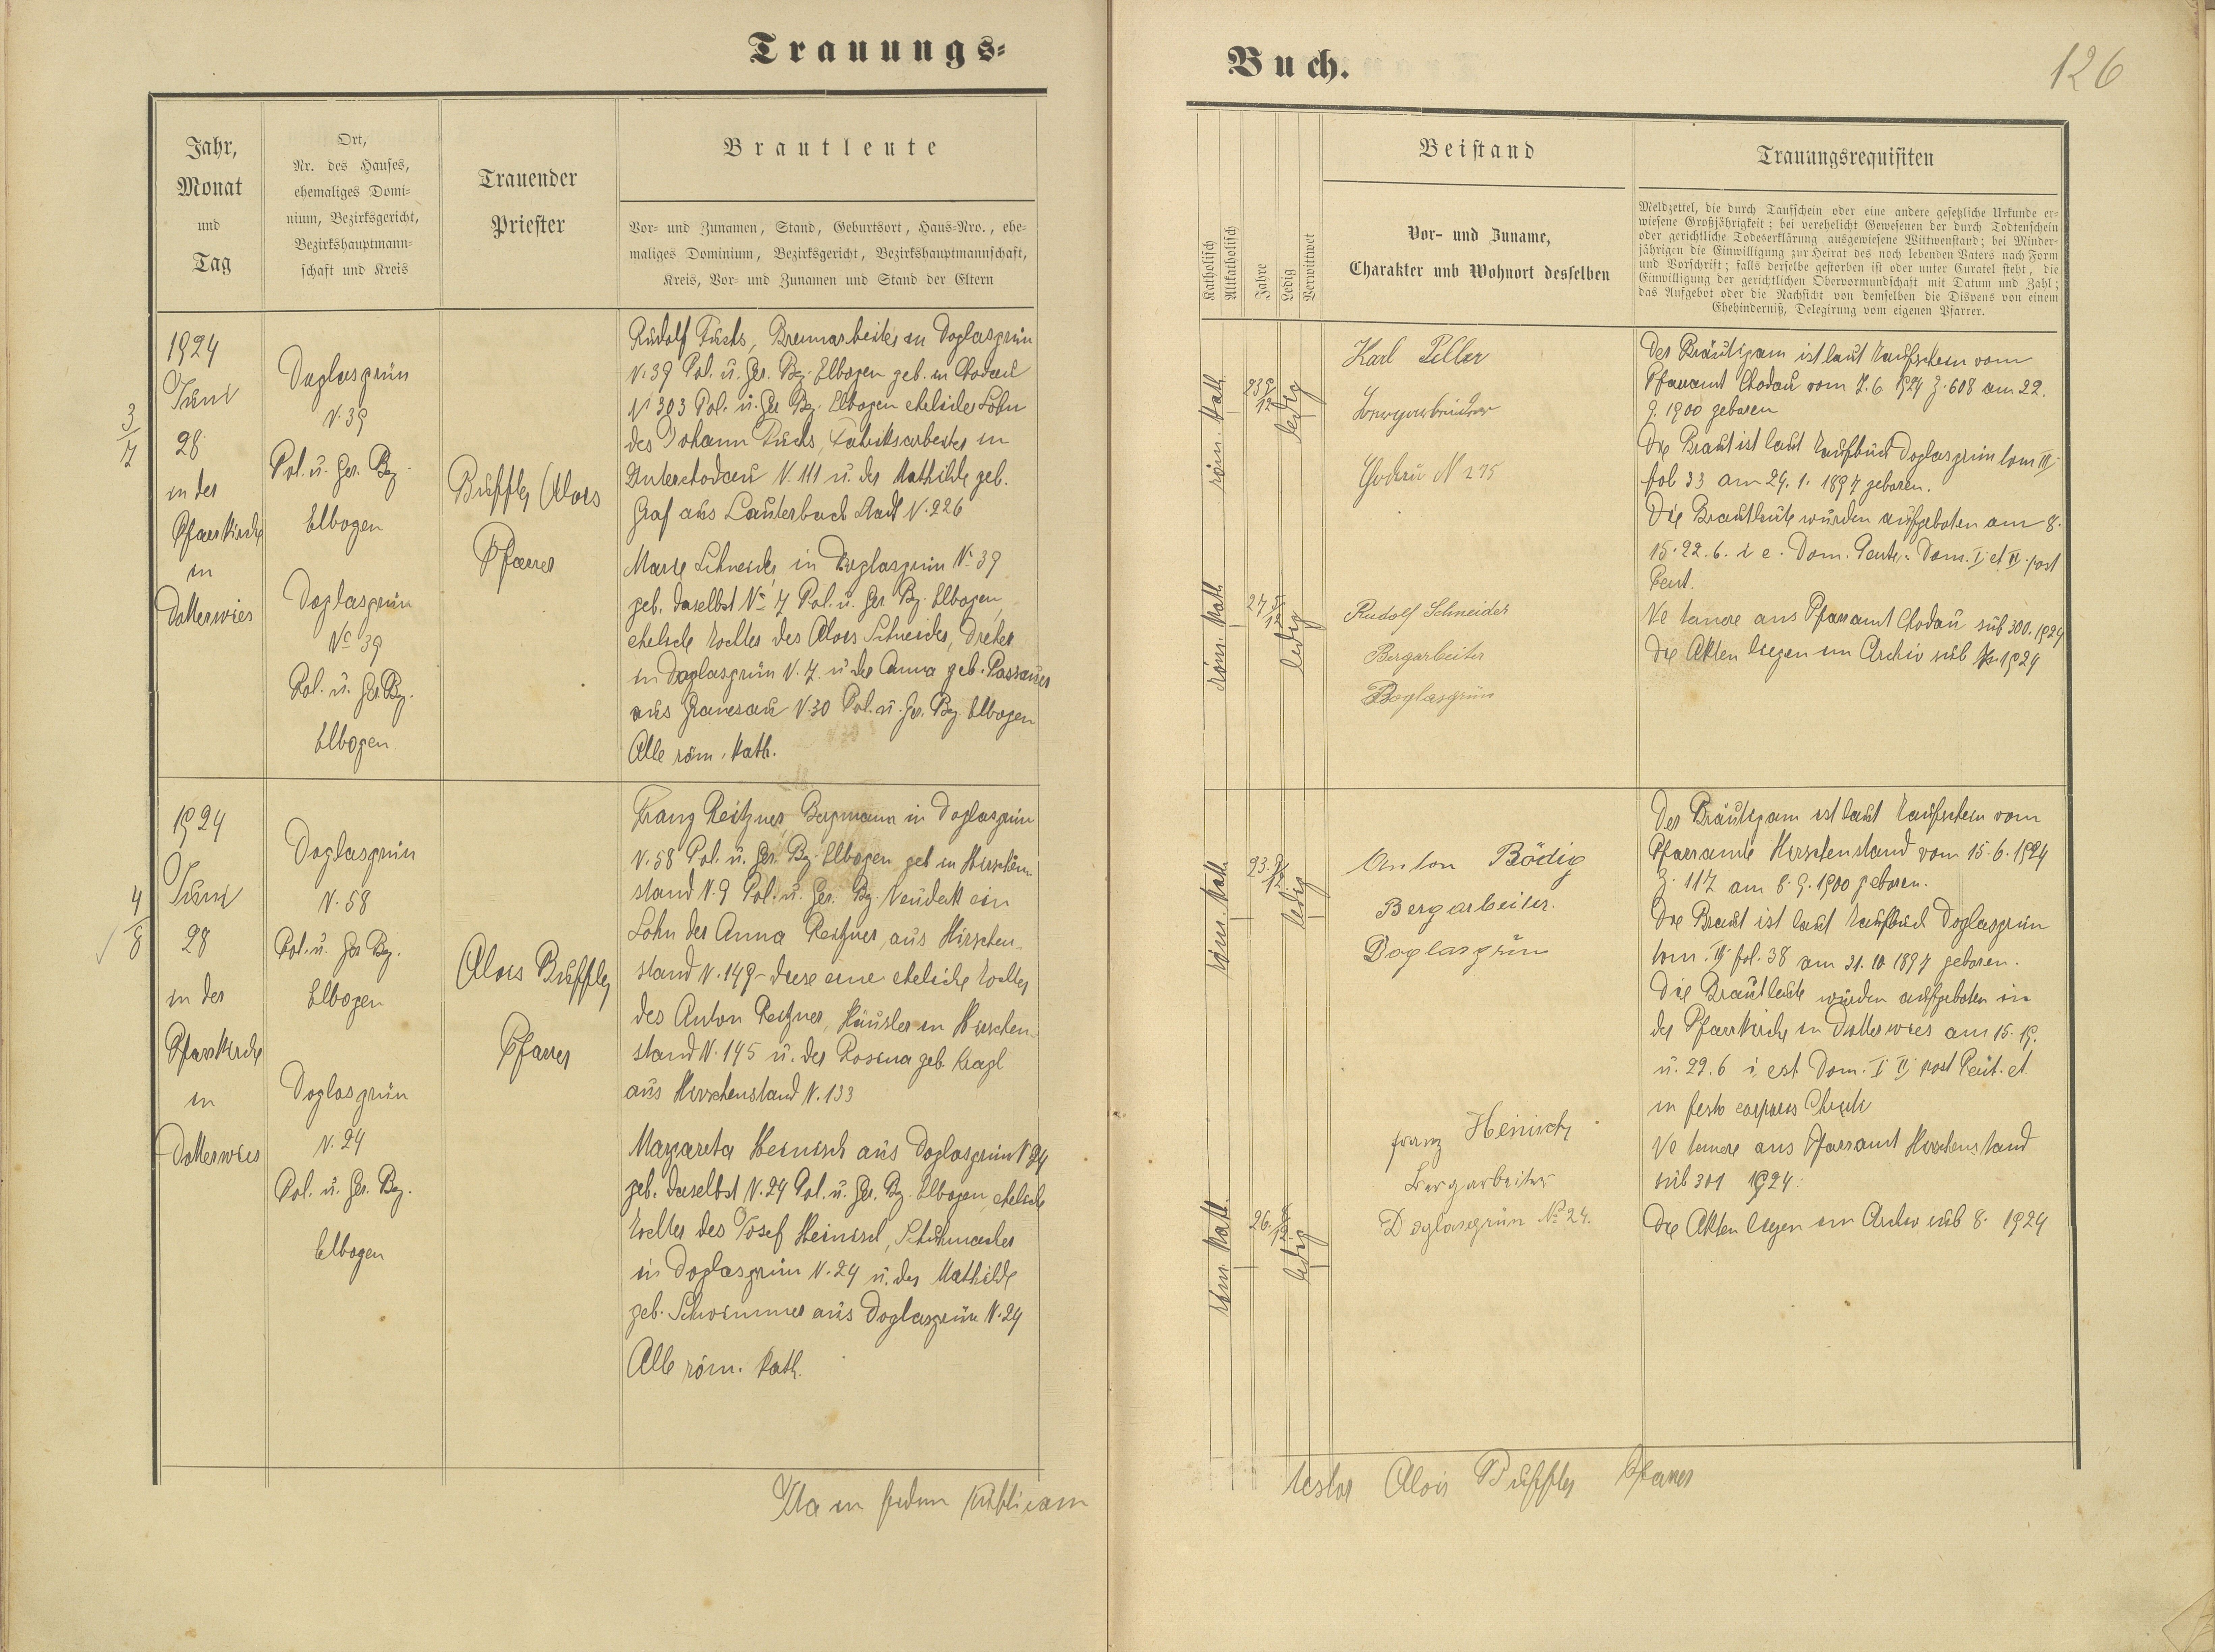 Trauungs-
Jahr,
Monat
und
Tag
Ort,
Nr. des Hauses,
ehemaliges Domi-
nium, Bezirksgericht,
Bezirkshauptmann-
schaft und Kreis
Trauender
Priester
Brautleute
Vor- und Zunamen, Stand, Geburtsort, Haus-Nro., ehe-
maliges Dominium, Bezirksgericht, Bezirkshauptmannschaft,
Kreis, Vor- und Zunamen und Stand der Eltern
3
7
1924
Juni
28
in der
Pfarrkirche
in
Dotterwies
Doglasgrün
N. 39
Pol. u. Ger. Bez.
Elbogen
Doglasgrün
No 39
Pol. u. Ger. Bez.
Elbogen
Alois
Pfarrer
Rudolf Fuchs, in Doglasgrün
N. 39 Pol. u. Ger. Bez. Elbogen geb. in Chodau
N 303 Pol. u. Ger Bez. Elbogen ehelicher Sohn
des Johann Fuchs, Fabriksarbeiter in
Unterchodau N. 111 u. der Mathilde geb.
Graf aus Lauterbach Stadt N. 226
Marie Schneider in Doglasgrün No 39
geb. daselbst No 7 Pol. u. Ger. Bez. Elbogen,
eheliche Tochter des Alois Schneider, Dreher
in Doglasgrün N. 7. u. der Anna geb.
aus Granesau N. 30 Pol. u. Ger. Bez Elbogen
Alle röm. kath.
4
8
1924
Juni
28
in der
Pfarrkirche
in
Dotterwies
Doglasgrün
N. 58
Pol. u. Ger Bez.
Elbogen
Doglasgrün
N. 24
Pol. u. Ger. Bez.
Elbogen
Alois
Pfarrer
Franz Reitzner, Bergmann in Doglasgrün
N. 58 Pol. u. Ger. Bez. Elbogen geb in Hirschen-
stand N. 9 Pol. u. Ger. Bez. Neudek ein
Sohn der Anna Reitzner, aus Hirschen-
stand N. 149 - diese eine eheliche Tochter
des Anton Reitzner, Häusler in Hirschen-
stand N. 145 u. der Rosina geb.
aus Hirschenstand N. 133
Margareta Heinisch aus Doglasgrün N 24
geb. daselbst N. 24 Pol. u. Ger. Bez. Elbogen, eheliche
Tochter des Josef Heinisch, Schuhmacher
in Doglasgrün N. 24 u. der Mathilde
geb. Schwimmer aus Doglasgrün N. 24
Alle röm. kath.
Ita in fidem publicam
Buch.
126
Katholisch
Altkatholisch
Jahre
Ledig
Verwittwet
Beistand
Vor- und Zuname,
Charakter und Wohnort desselben
Trauungsrequisiten
Meldzettel, die durch Taufschein oder eine andere gesetzliche Urkunde er-
wiesene Großjährigkeit; bei verehelicht Gewesenen der durch Todtenschein
oder gerichtliche Todeserklärung ausgewiesene Wittwenstand; bei Minder-
jährigen die Einwilligung zur Heirat des noch lebenden Vaters nach Form
und Vorschrift; falls derselbe gestorben ist oder unter Curatel steht, die
Einwilligung der gerichtlichen Obervormundschaft mit Datum und Zahl;
das Aufgebot oder die Nachsicht von demselben die Dispens von einem
Ehehinderniß, Delegirung vom eigenen Pfarrer.
röm. kath.
23 9/12
ledig
Karl
Bergarbeiter
Chodau N 275
röm. kath.
27 5/12
ledig
Rudolf Schneider
Bergarbeiter
Doglasgrün
Der Bräutigam ist laut Taufschein vom
Pfarramt Chodau vom 7. 6 1924 Z. 608 am 22.
9. 1900 geboren
Die Braut ist laut Taufbuch Doglasgrün tom III
fol 33 am 24. 1. 1897 geboren.
Die Brautleute wurden aufgeboten am 8.
15. 22. 6. i e. Dom. Pent., Dom. I et II post
Pent.
Ne temere ans Pfarramt Chodau sub 300. 1924
Die Akten liegen im Archiv sub 1924
röm. kath.
23. 9/12
ledig
Anton Bödig
Bergarbeiter.
Doglasgrün
röm kath.
26. 8/12
ledig
Franz Heinisch
Bergarbeiter
Doglasgrün No 24.
Der Bräutigam ist laut Taufschein vom
Pfarramte Hirschenstand vom 15. 6. 1924
Z. 117 am 8. 9. 1900 geboren.
Die Braut ist laut Taufbuch Doglasgrün
tom. III fol. 38 am 31. 10 1897 geboren.
Die Brautleute wurden aufgeboten in
der Pfarrkirche in Dotterwies am 15. 19.
u. 22. 6 i. est Dom. I II post Pent. et
in festo corporis Christi
Ne temere ans Pfarramt Hirschenstand
sub 301 1924.
Die Akten liegen im Archiv sub 8. 1924
testor Alois Pfarrer